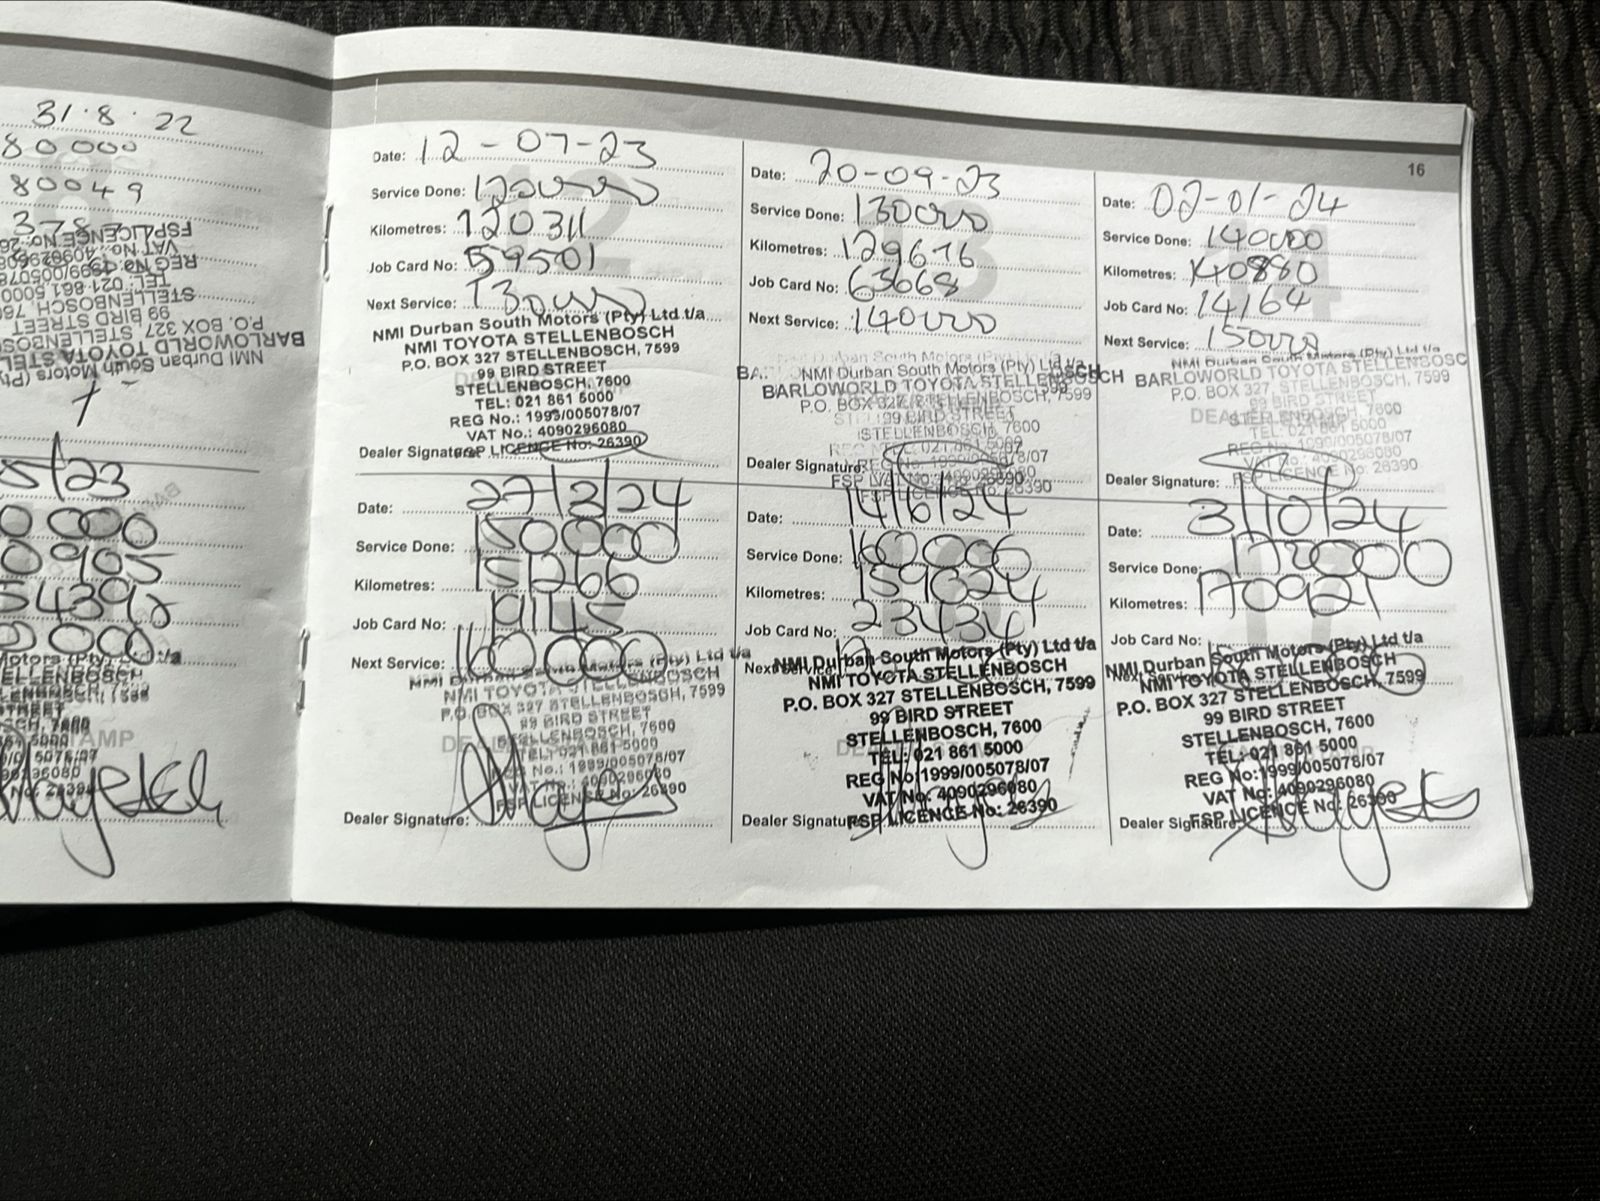 31.8.22
80000
80049
378
FSP LICENCE No: 26
VAT No.: 40902960
REG No: 1999/00507
TEL: 021 861 5000
STELLENBOSCH, 760
99 BIRD STREET
P.O. BOX 327 STELLENBOS
BARLOWORLD TOYOTA STEL
NMI Durban South Motors (Pty
5/23
0000
0905
54392
0000
Motors (Pty) Ltd t/a
ELLENBOSCH
STREET
SCH, 7600
61 5000
STAMP
16
Date: 12-07-23
Service Done: 120000
Kilometres: 120311
Job Card No: 59501
Next Service: 130000
NMI Durban South Motors (Pty) Ltd t/a
NMI TOYOTA STELLENBOSCH
P.O. BOX 327 STELLENBOSCH, 7599
99 BIRD STREET
STELLENBOSCH, 7600
TEL: 021 861 5000
REG No.: 1993/005078/07
VAT No.: 4090296080
FSP LICENCE No: 26390
Dealer Signature:
Date: 20-09-23
Service Done: 130000
Kilometres: 129676
Job Card No: 63668
Next Service: 140000
NMI Durban South Motors (Pty) Ltd t/a
BARLOWORLD TOYOTA STELLENBOSCH
P.O. BOX 327 STELLENBOSCH, 7599
99 BIRD STREET
STELLENBOSCH, 7600
Dealer Signature:
Date: 02-01-24
Service Done: 140000
Kilometres: 140880
Job Card No: 14164
Next Service: 150000
NMI Durban South Motors (Pty) Ltd t/a
BARLOWORLD TOYOTA STELLENBOSC
P.O. BOX 327 STELLENBOSCH, 7599
99 BIRD STREET
STELLENBOSCH, 7600
TEL: 021 861 5000
REG No: 1999/005078/07
VAT No.: 4090296080
FSP LICENCE No: 26390
Dealer Signature:
Date: 27/3/24
Service Done: 150000
Kilometres: 151266
Job Card No: 19145
Next Service: 160000
NMI Durban South Motors (Pty) Ltd t/a
NMI TOYOTA STELLENBOSCH
P.O. BOX 327 STELLENBOSCH, 7599
99 BIRD STREET
STELLENBOSCH, 7600
TEL: 021 861 5000
REG No.: 1999/005078/07
VAT No.: 4090296080
FSP LICENCE No: 26390
Dealer Signature:
Date: 14/6/24
Service Done: 160000
Kilometres: 159024
Job Card No: 23434
Next Service:
NMI Durban South Motors (Pty) Ltd t/a
NMI TOYOTA STELLENBOSCH
P.O. BOX 327 STELLENBOSCH, 7599
99 BIRD STREET
STELLENBOSCH, 7600
TEL: 021 861 5000
REG No: 1999/005078/07
VAT No: 4090296080
FSP LICENCE No: 26390
Dealer Signature:
Date: 3/10/24
Service Done:
Kilometres: 170921
Job Card No:
Next Service:
NMI Durban South Motors (Pty) Ltd t/a
NMI TOYOTA STELLENBOSCH
P.O. BOX 327 STELLENBOSCH, 7599
99 BIRD STREET
STELLENBOSCH, 7600
TEL: 021 861 5000
REG No: 1999/005078/07
VAT No: 4090296080
FSP LICENCE No: 26390
Dealer Signature: